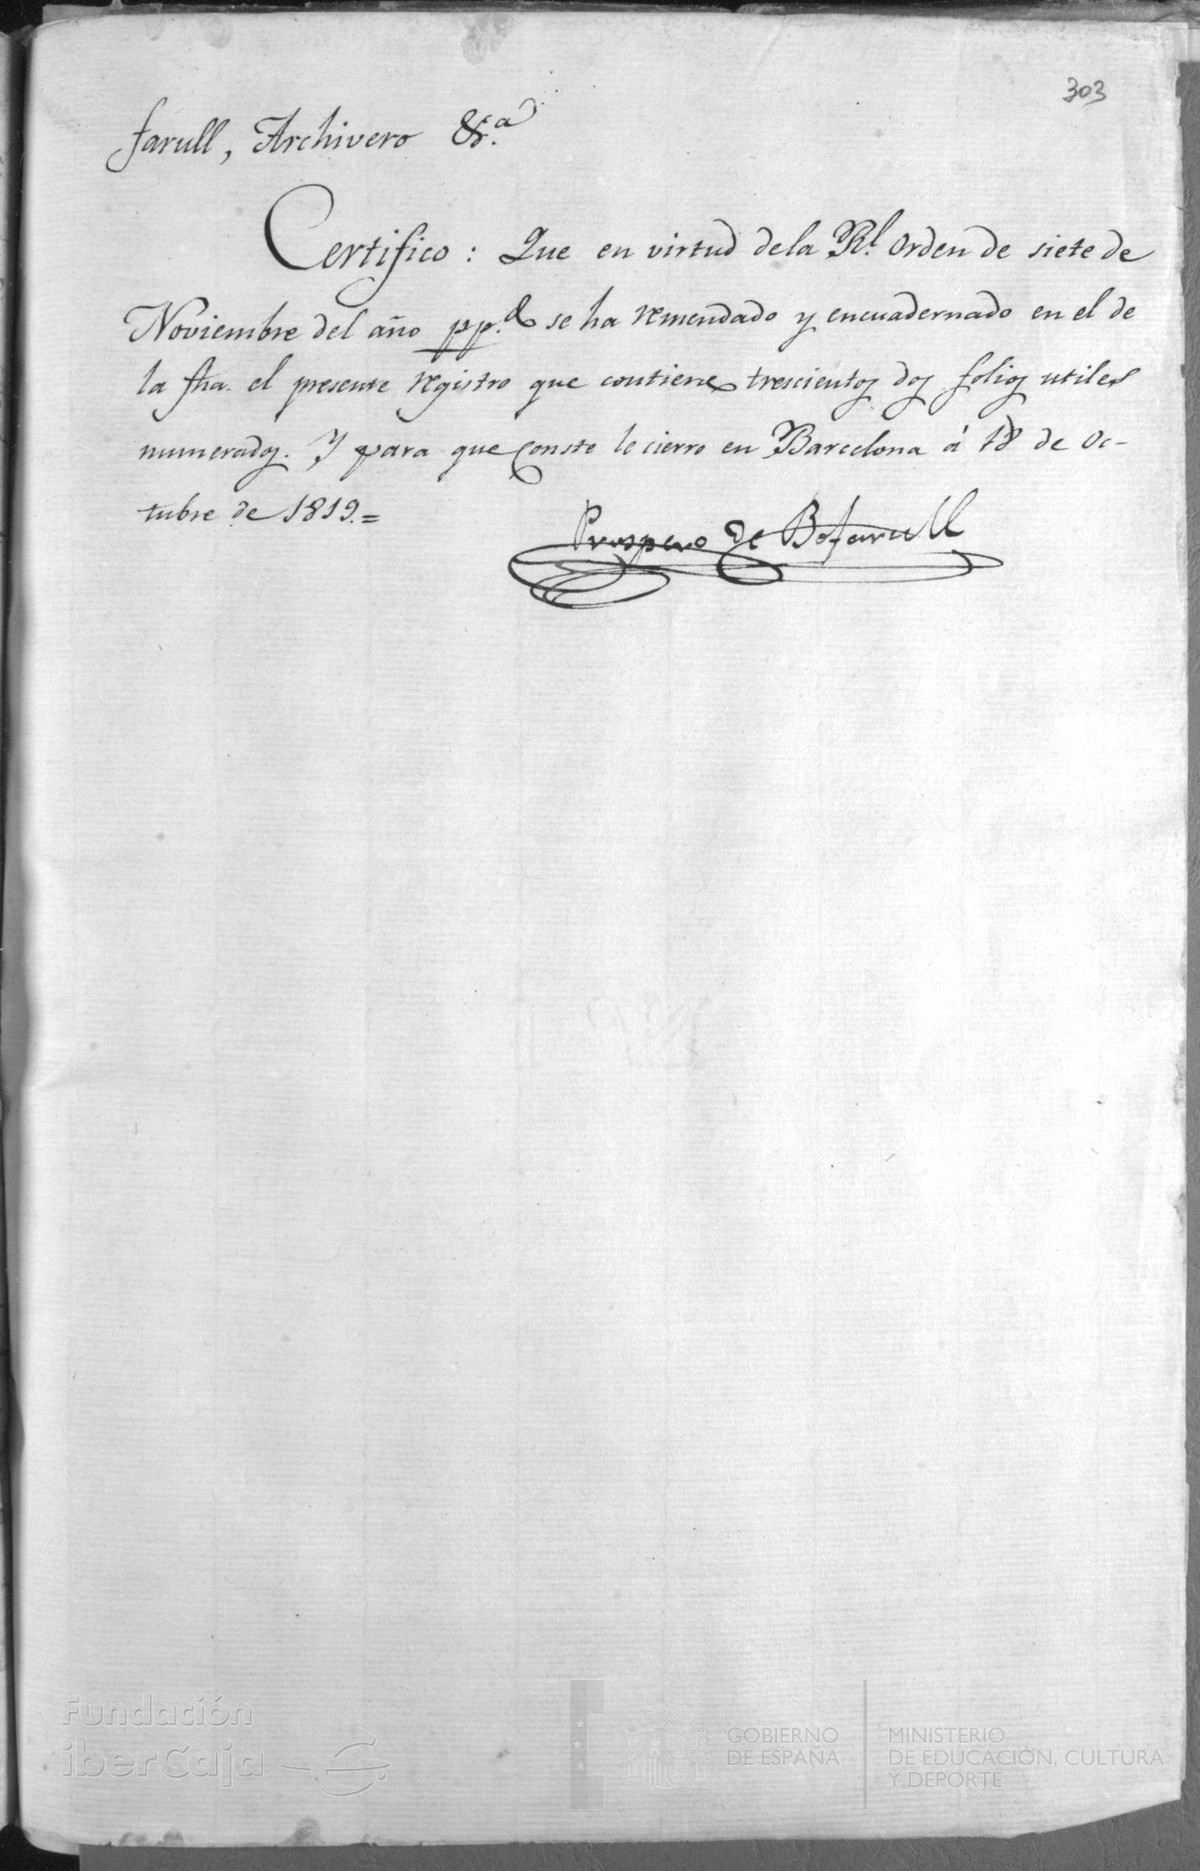 303
farull, Archivero &c.a
Certifico: Que en virtud dela Rl. Orden de siete de
Noviembre del año pp.do se ha remendado y encuadernado en el de
la fha. el presente registro que contiene trescientos dos folios utiles
numerados. Y para que conste le cierro en Barcelona á 18 de Oc-
tubre de 1819.=
Prospero de Bofarull
Fundación
iberCaja
GOBIERNO
DE ESPAÑA
MINISTERIO
DE EDUCACIÓN, CULTURA
Y DEPORTE